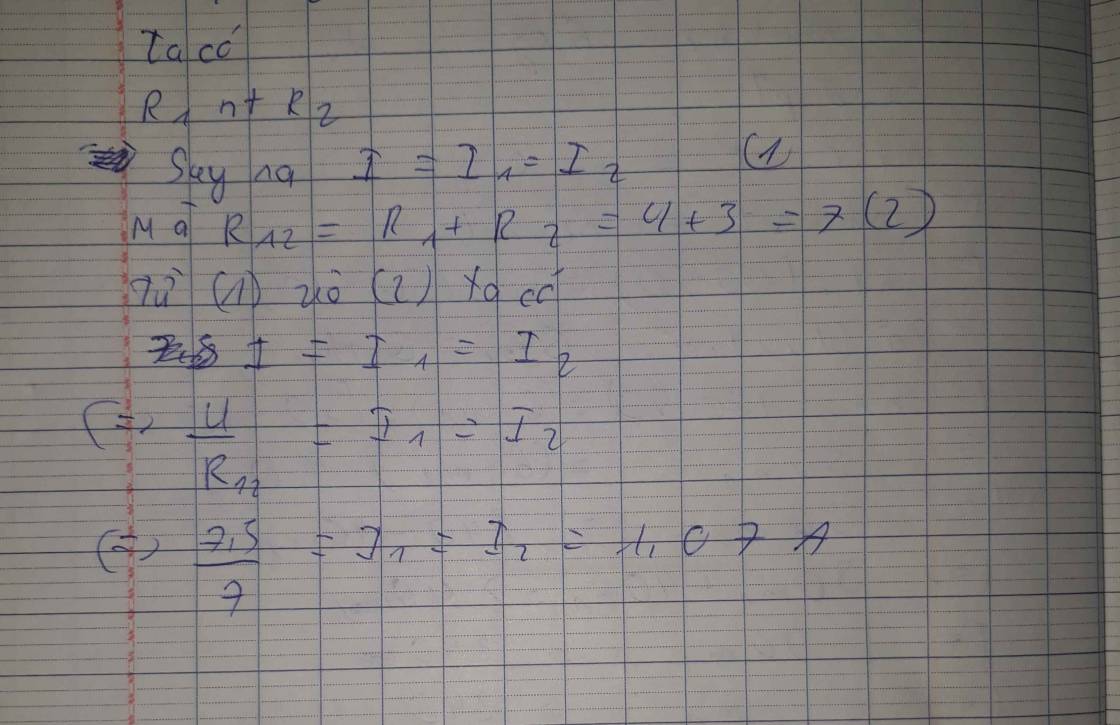 Ta có
R₁ nt R₂
Suy ra I = I₁ = I₂ (1
Mà R₁₂ = R₁ + R₂ = 4 + 3 = 7 (2)
Từ (1) và (2) ta có
I = I₁ = I₂
(=) U / R₁₂ = I₁ = I₂
(=) 7,5 / 7 = I₁ = I₂ = 1,07 A